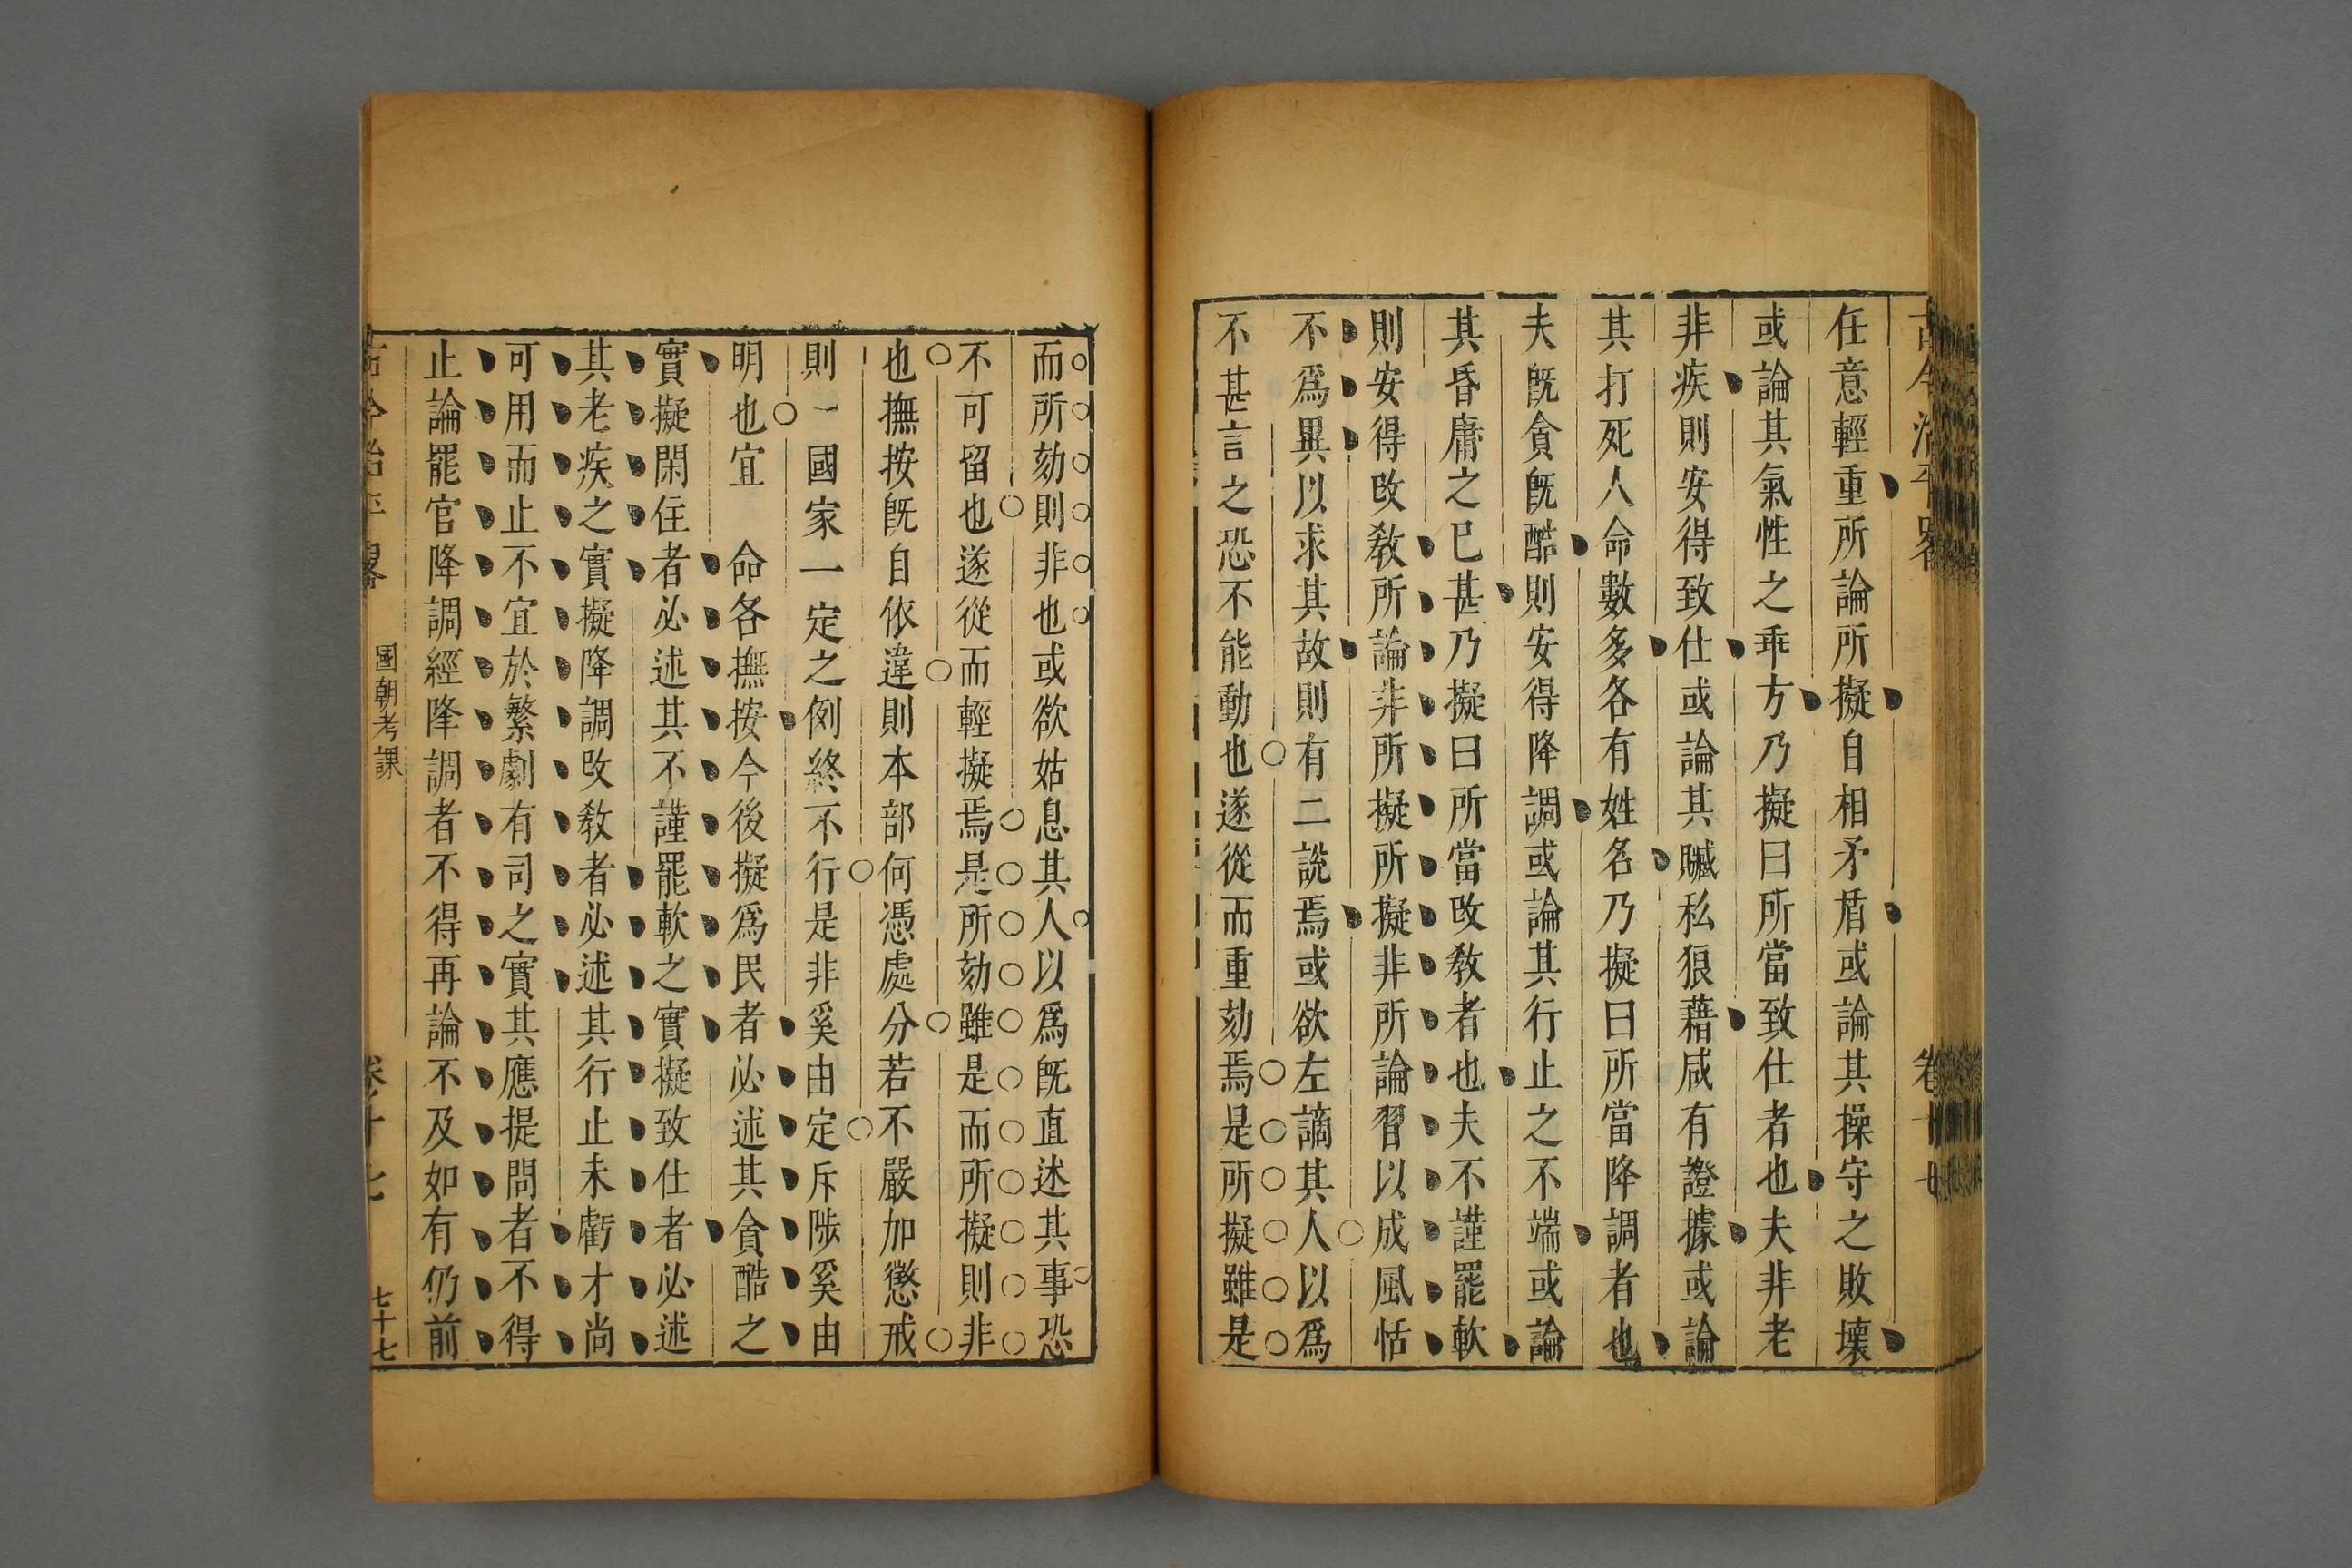 古今治平畧
卷十七
任意輕重所論所擬自相矛盾或論其操守之敗壞
或論其氣性之乖方乃擬曰所當致仕者也夫非老
非疾則安得致仕或論其贓私狼藉咸有證據或論
其打死人命數多各有姓名乃擬曰所當降調者也
夫旣貪旣酷則安得降調或論其行止之不端或論
其昏庸之巳甚乃擬曰所當改教者也夫不謹罷軟
則安得改教所論非所擬所擬非所論習以成風恬
不爲異以求其故則有二說焉或欲左謫其人以爲
不甚言之恐不能動也遂從而重劾焉是所擬雖是
而所劾則非也或欲姑息其人以爲旣直述其事恐
不可留也遂從而輕擬焉是所劾雖是而所擬則非
也撫按旣自依違則本部何憑處分若不嚴加懲戒
則一國家一定之例終不行是非奚由定斥陟奚由
明也宜　命各撫按今後擬爲民者必述其貪酷之
實擬閑住者必述其不謹罷軟之實擬致仕者必述
其老疾之實擬降調改教者必述其行止未虧才尚
可用而止不宜於繁劇有司之實其應提問者不得
止論罷官降調經降調者不得再論不及如有仍前
古今治平畧
國朝考課
卷十七
七十七